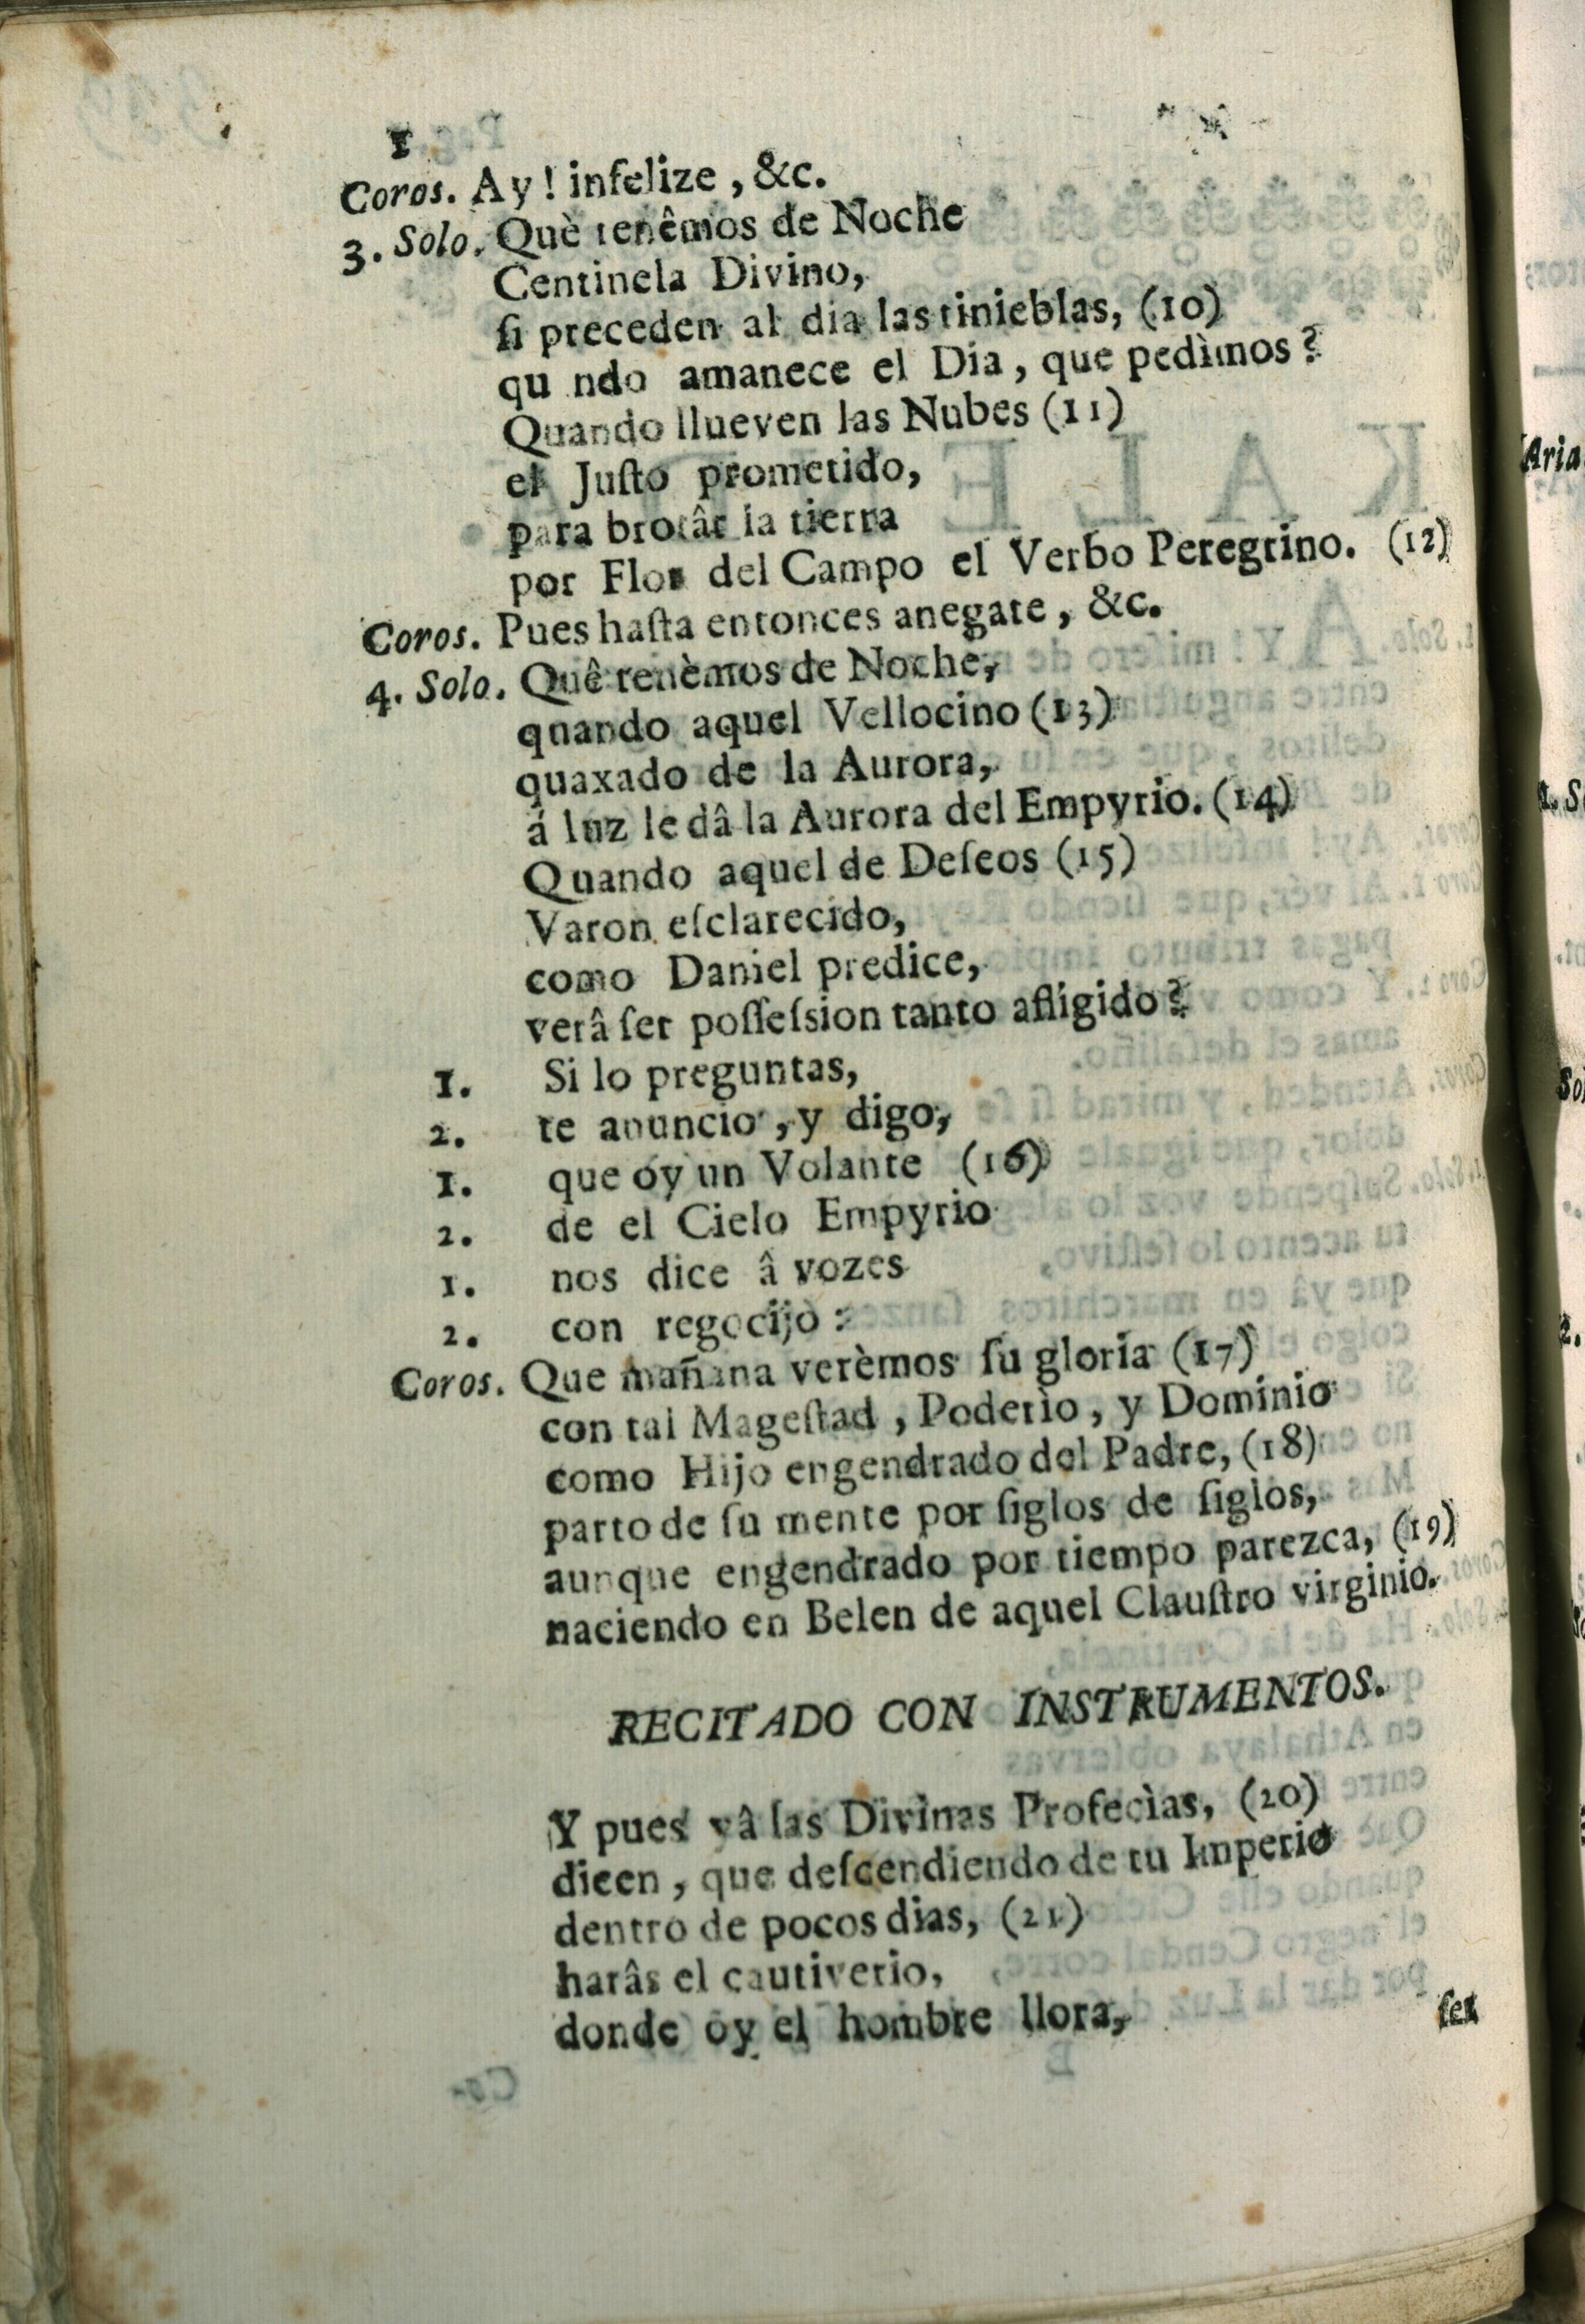 1
Coros. Ay! infelize, &c.
3. Solo. Què tenêmos de Noche
Centinela Divino,
ſi preceden al dia las tinieblas, (10)
qu ndo amanece el Dia, que pedìmos?
Quando llueven las Nubes (11)
el Juſto prometido,
para brotâr la tierra
por Flor del Campo el Verbo Peregrino. (12)
Coros. Pues haſta entonces anegate, &c.
4. Solo. Quê tenèmos de Noche,
quando aquel Vellocino (13)
quaxado de la Aurora,
á luz le dâ la Aurora del Empyrio. (14)
Quando aquel de Deſeos (15)
Varon eſclarecido,
como Daniel predice,
verâ ſer poſſeſsion tanto afligido?
1. Si lo preguntas,
2. te anuncio, y digo,
1. que oy un Volante (16)
2. de el Cielo Empyrio
1. nos dice â vozes
2. con regocijo:
Coros. Que mañana verèmos ſu gloria (17)
con tal Mageſtad, Poderìo, y Dominio
como Hijo engendrado del Padre, (18)
parto de ſu mente por ſiglos de ſiglos,
aunque engendrado por tiempo parezca, (19)
naciendo en Belen de aquel Clauſtro virginio.
RECITADO CON INSTRUMENTOS.
Y pues yâ las Divìnas Profecìas, (20)
dicen, que deſcendiendo de tu Imperio
dentro de pocos dias, (21)
harâs el cautiverio,
donde oy el hombre llora,
ſer
Aria